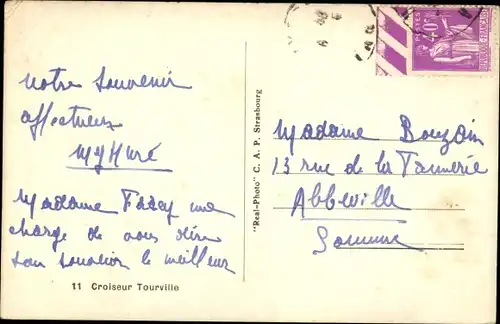 Notre souvenir
affectueux
Madame me
charge de vous dire
son souvenir le meilleur
11 Croiseur Tourville
"Real-Photo" C. A. P. Strasbourg
POSTES
40c
Madame Bouzain
13 rue de la Tannerie
Abbeville
Somme